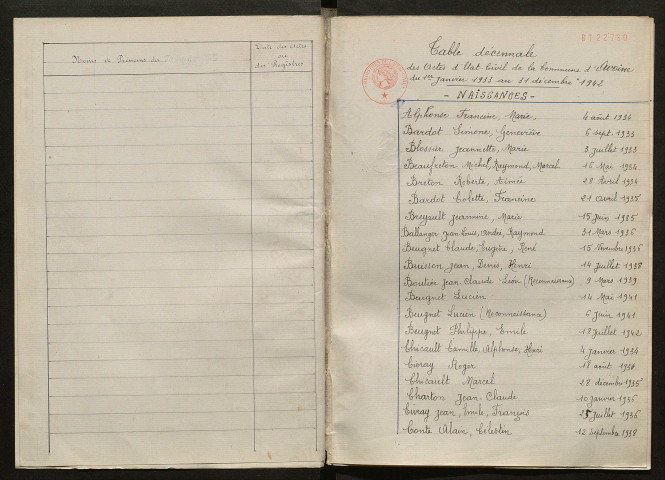 Noms et Prénoms des
Date des Actes
ou
des Registres
8122760
Table décennale
des Actes d'Etat Civil de la Commune d'
du 1er Janvier 1933 au 31 décembre 1942
- NAISSANCES -
Alphonse Francine, Marie, 4 août 1934
Bardot Simone, Geneviève 6 sept. 1933
Blossier Jeannette, Marie 3 juillet 1933
Beaufreton Michel, Raymond, Marcel 16 Mai 1934
Breton Roberte, Aimée 28 Avril 1934
Bardot Colette, Francine 21 avril 1935
Bregault Jeannine, Marie 15 Juin 1935
Ballanger Jean Louis, André, Raymond 31 Mars 1936
Beugnet Claude, Eugène, René 15 Novembre 1936
Buisson Jean, Denis, Henri 14 Juillet 1938
Boutier Jean. Claude Léon (Reconnaissance) 9 Mars 1939
Beugnet Lucien 14 Mai 1941
Beugnet Lucien (Reconnaissance) 6 Juin 1941
Beugnet Philippe, Emile 18 Juillet 1942
Chicault Camille, Alphonse, Henri 4 janvier 1934
Civray Roger 18 août
Chicault Marcel 28 décembre 1935
Charton Jean Claude 10 janvier 1936
Civray Jean, Emile, François 25 Juillet 1936
Conte Alain, Célestin 12 Septembre 1938